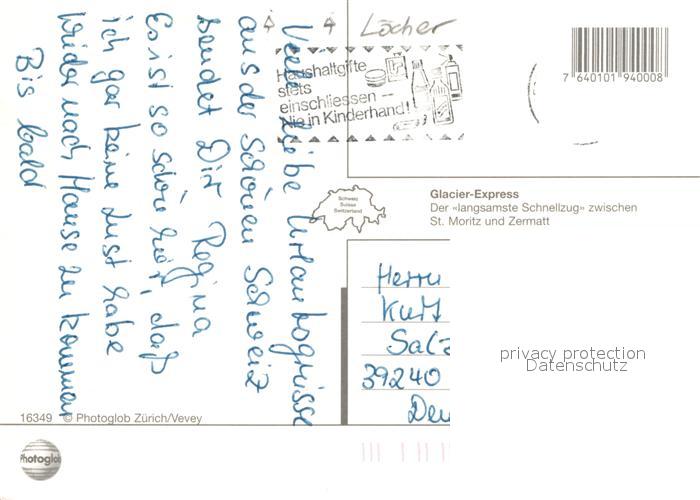 Löcher
Haushaltgifte
stets
einschliessen –
Nie in Kinderhand!
7 640101 940008
Viele liebe Urlaubsgrüsse
aus der schönen Schweiz
sendet Dir Regina
Es ist so schön hier, daß
ich gar keine Lust habe
wider nach Hause zu kommen
Bis bald
Schweiz
Suisse
Switzerland
Glacier-Express
Der «langsamste Schnellzug» zwischen
St. Moritz und Zermatt
Herrn
Kurt
Salz
39240
Deu
privacy protection
Datenschutz
16349 © Photoglob Zürich/Vevey
Photoglob